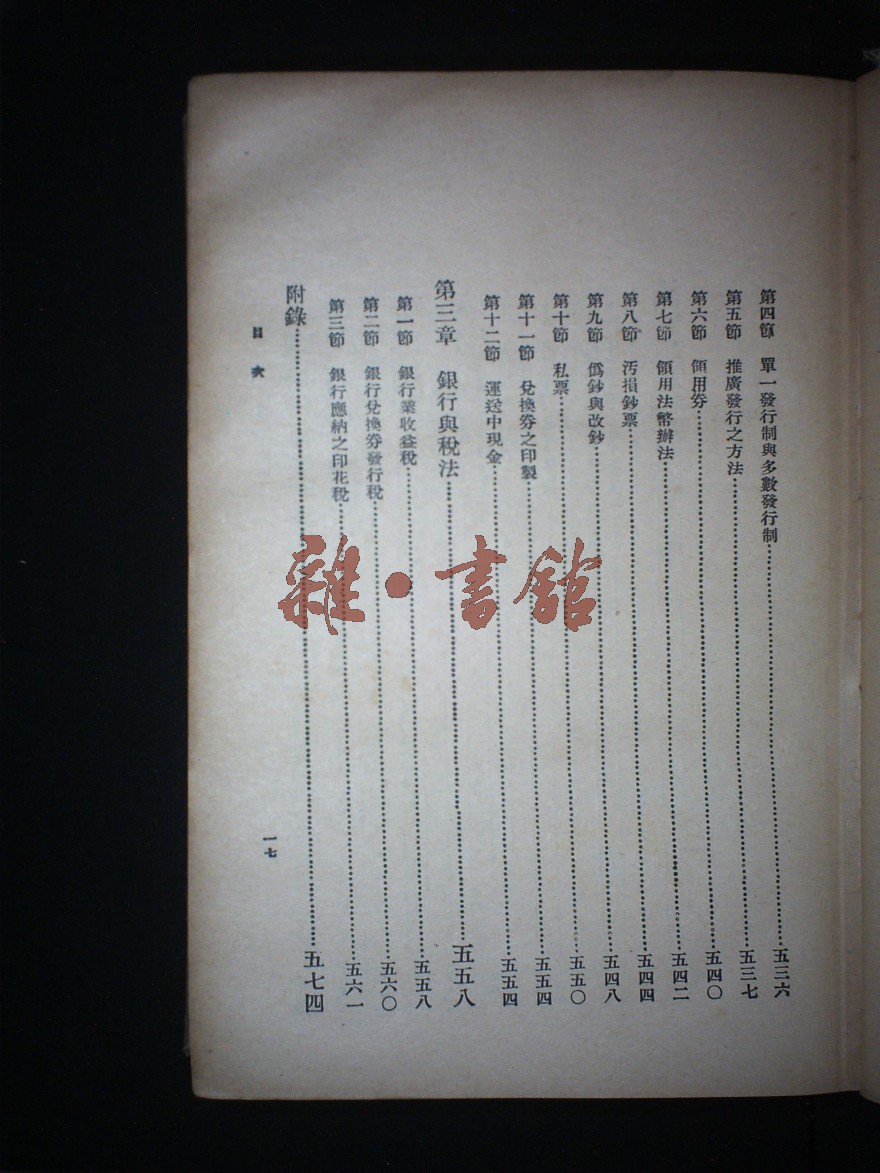 第四節 單一發行制與多數發行制……五三六
第五節 推廣發行之方法……五三七
第六節 領用券……五四〇
第七節 領用法幣辦法……五四二
第八節 汚損鈔票……五四四
第九節 僞鈔與改鈔……五四八
第十節 私票……五五〇
第十一節 兌換券之印製……五五四
第十二節 運送中現金……五五四
第三章 銀行與稅法……五五八
第一節 銀行業收益稅……五五八
第二節 銀行兌換券發行稅……五六〇
第三節 銀行應納之印花稅……五六一
附錄……五七四
目次
一七
雜·書館